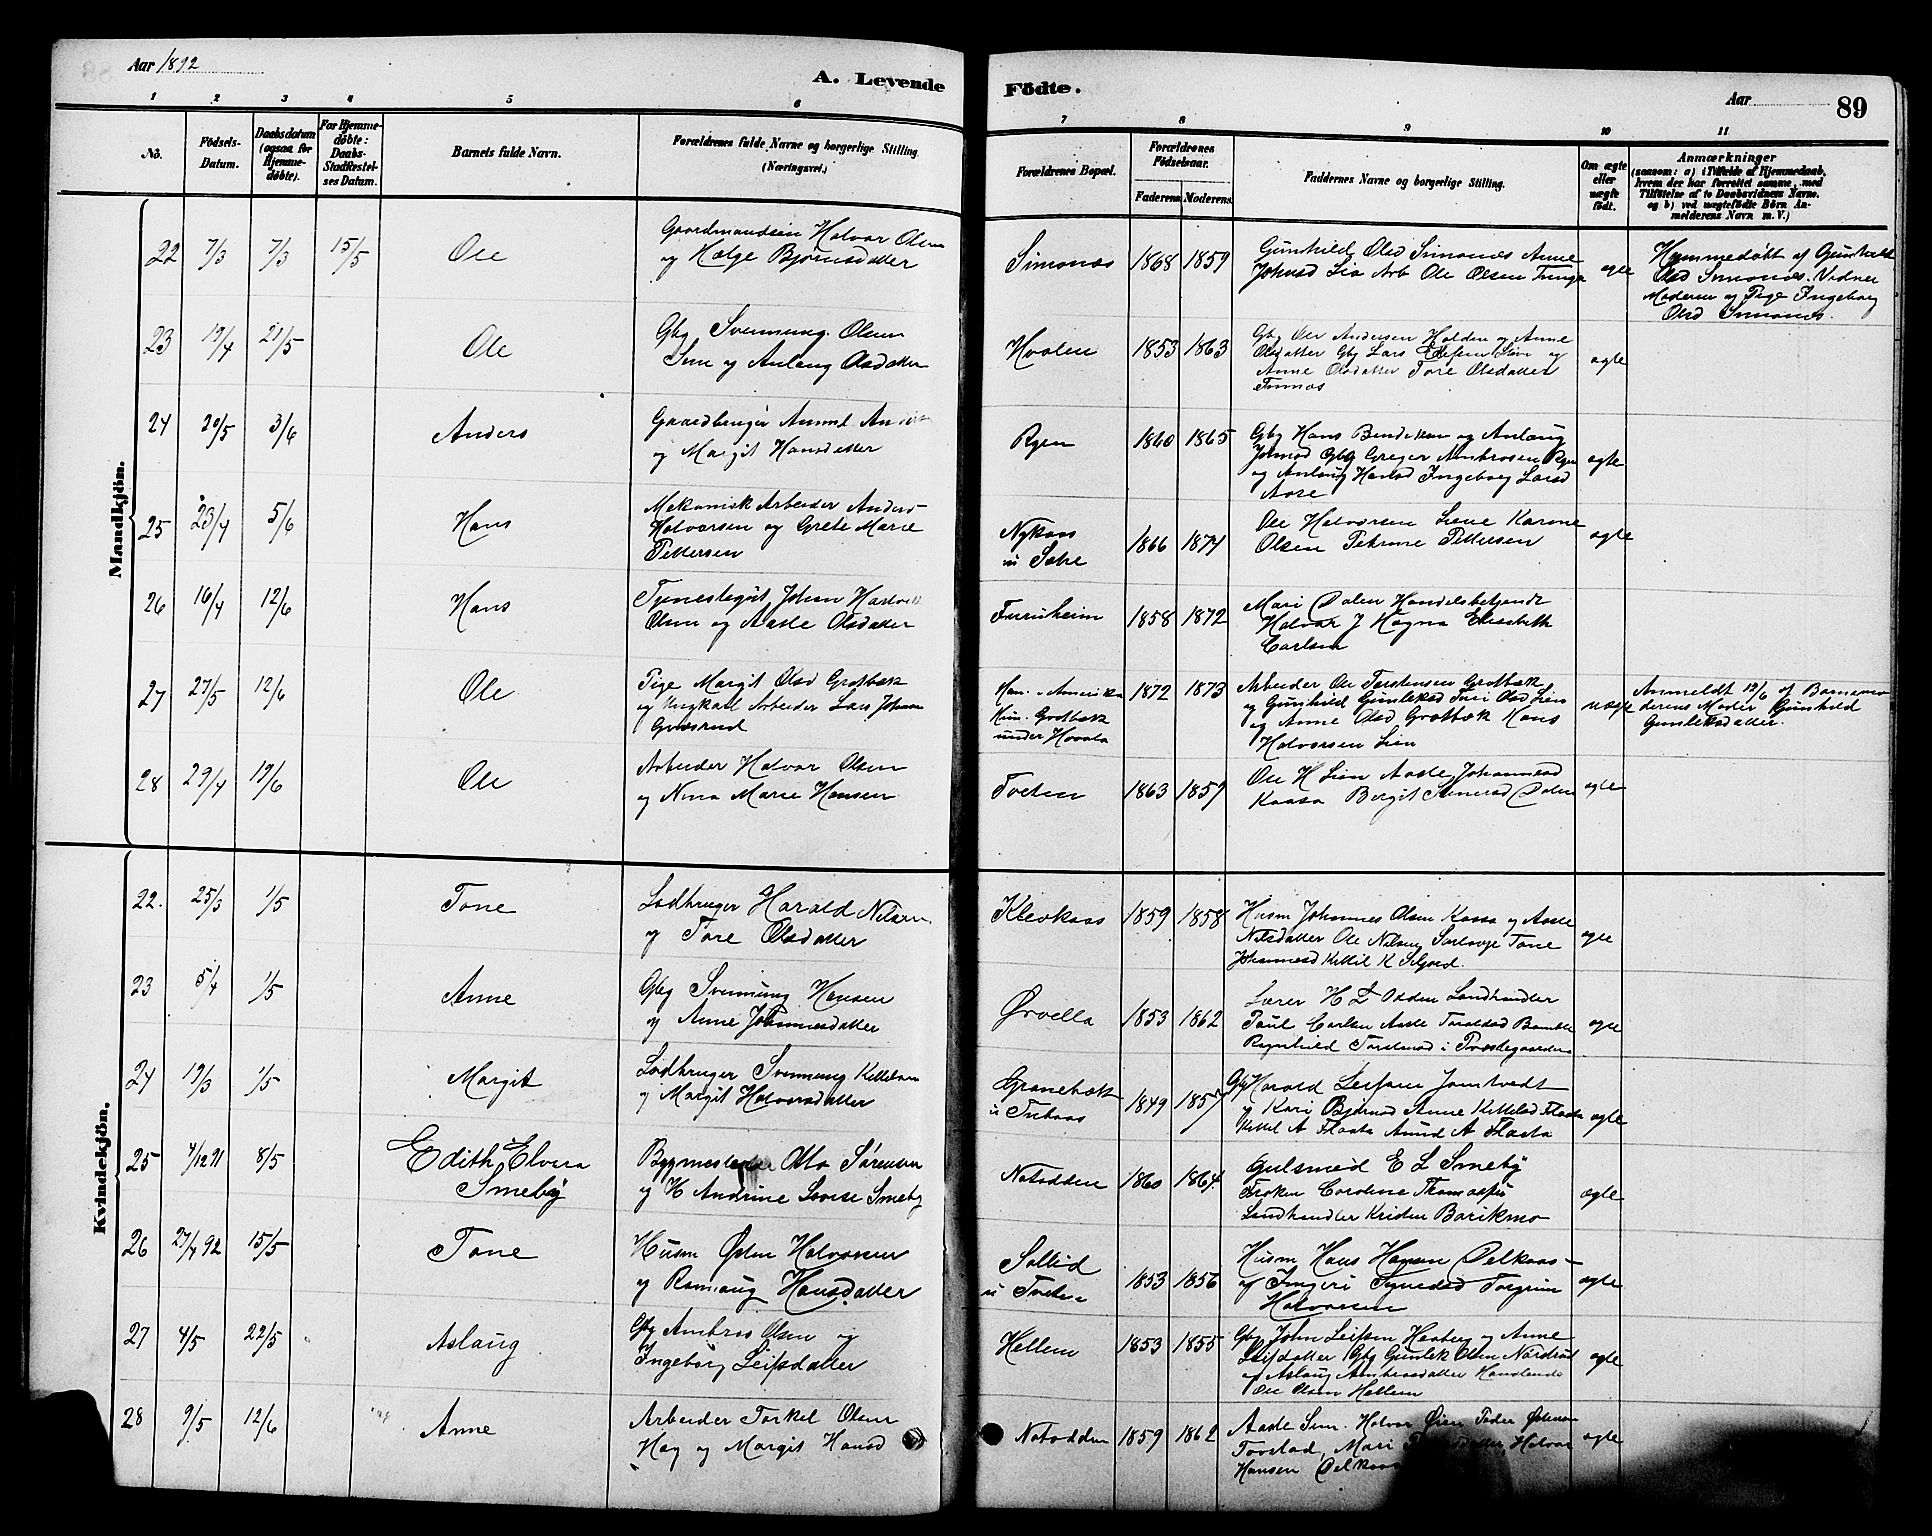 Aar 1892
A. Levende
Födte.
Aar
89
1 2 3 4 5 6
7 8 9 10 11
No.
Födsels-
Datum.
Daabsdatum
(ogsaa for
Hjemme-
døbte).
For Hjemme-
døbte:
Daabs-
Stadfæstel-
ses Datum.
Barnets fulde Navn.
Forældrenes fulde Navne og borgerlige Stilling
(Næringsvei.)
Forældrenes Bopæl.
Forældrenes
Födselsaar.
Faderens Moderens
Faddernes Navne og borgerlige Stilling.
Om ægte
eller
uægte
født.
Anmærkninger
(saasom: a) i Tilfælde af Hjemmedaab,
hvem der har forrettet samme, med
Tilföielse af to Daabsvidners Navne.
og b) ved uægtefödte Börn An-
melderens Navn m.V.)
Mandkjön.
22 7/3 7/3 15/5 Ole
Gaardmandsøn Halvor Olsen
og Helge Bjørnsdatter
Simonæs 1868 1859
Gunhild Olsd Simonæs Anne
Johnsd Lia Arb Ole Olsen Tinga
ægte
Hjemmedøbt af Gunhild
Olsd Simonæs. Vidner
Moderen og Pige Ingeborg
Olsd Simonæs.
23 19/4 21/5 Ole
Gbg Svennung Olsen
Sem og Anlaug Olsdatter
Hvalen 1853 1863
Gbg Ole Andersen Holden og Anne
Olsdatter Gbg Lars Sem og
Anne Olsdatter Tore Olsdatter
Tinnæs
ægte
24 20/5 3/6 Anders
Gaardbruger Amund
og Margit Hansdatter
Ryen 1860 1865
Gbg Hans Bendiksen og Anlaug
Johnsd Gbg Greger Ambrosen Ryen
og Anlaug Hansd Ingeborg Larsd
Aase
ægte
25 23/4 5/6 Hans
Mekanisk Arbeider Anders
Halvorsen og Grete Marie
Pettersen
Nykaas
u Sætre 1866 1874
Ole Halvorsen Lene Karine
Olsen Petrine Pettersen
ægte
26 16/4 12/6 Hans
Tjenestegut Johan
Olsen og Aasle Olsdatter
Furuheim 1858 1872
Mari Dalen Handelsbetjendt
Halvor J Høgna Elisabeth
Carlsen
27 27/5 12/6 Ole
Pige Margit Olsd Grotbæk
og Ungkarl Arbeider Lars Johnsen
Han. Amerika
Hun. Grotbæk
under Hovala
1872 1873
Arbeider Ole Torstensen Grotbæk
og Gunhild Gunleksd Tori Olsd Lien
og Anne Olsd Grotbæk Hans
Halvorsen Lien
uægte
Anmeldt 12/6 af Barnemo
derens Moder Gunhild
Gunleksdatter.
28 29/4 19/6 Ole
Arbeider Halvor Olsen
og Nina Marie Hansen
Tveten 1863 1859
Ole H Lien Aasle Johannesd
Kaasa Bergit Dalen
ægte
Kvindekjön.
22. 25/3 1/5 Tone
Lodbruger Harald Nilsen
og Tore Olsdatter
Klevkaas 1859 1858
Husm Johannes Olsen Kaasa og Aasle
Nilsdatter Ole Nilsen Tone
Johannesd Kittil K Seljord.
ægte
23 5/4 1/5 Anne
Gbg Svennung Hansen
og Anne Johannesdatter
Ørvella 1853 1862
Lærer H L Odden Landhandler
Paul Carlsen Aasle Bamble
Ragnhild i Præstegaarden
ægte
24 19/3 1/5 Margit
Lodbruger Svennung Kittilsen
og Margit Halvorsdatter
Granebæk
u
1849 1857
Gbg Harald Leifsen Jamtvedt
og Kari Bjørnsd Anne Kittilsd Flaata
Kittil A Flaata Amund A Flaata
ægte
25 4/12 91 8/5 Edith Elvira
Smeby
Bygmester Otto Sørensen
og H Andrine Lovise Smeby
Notodden 1860 1864
Gulsmed E L Smeby
Frøken Caroline
Landhandler Kristen Barikmo
ægte
26 27/4 92 15/5 Tone
Husm Østen Halvorsen
og Ramaug Hansdatter
Sollid
u Tveten 1853 1856
Husm Hans Hansen Ødelkaas
og Ingeri Torgrim
Halvorsen
ægte
27 4/5 22/5 Aslaug
Gbg Ambros Olsen og
Ingeborg Leifsdatter
Hellem 1853 1855
Gbg John Leifsen Haaberg og Anne
Leifsdatter Gbg Gunlek Olsen Nordrud
og Aslaug Ambrosdatter
Ole Olsen Hellem
ægte
28 9/5 12/6 Anne
Arbeider Torkel Olsen
Høg og Margit Hansd
Notodden 1859 1862
Aasle Sem. Halvor
Mari Halvor
Hansen
ægte